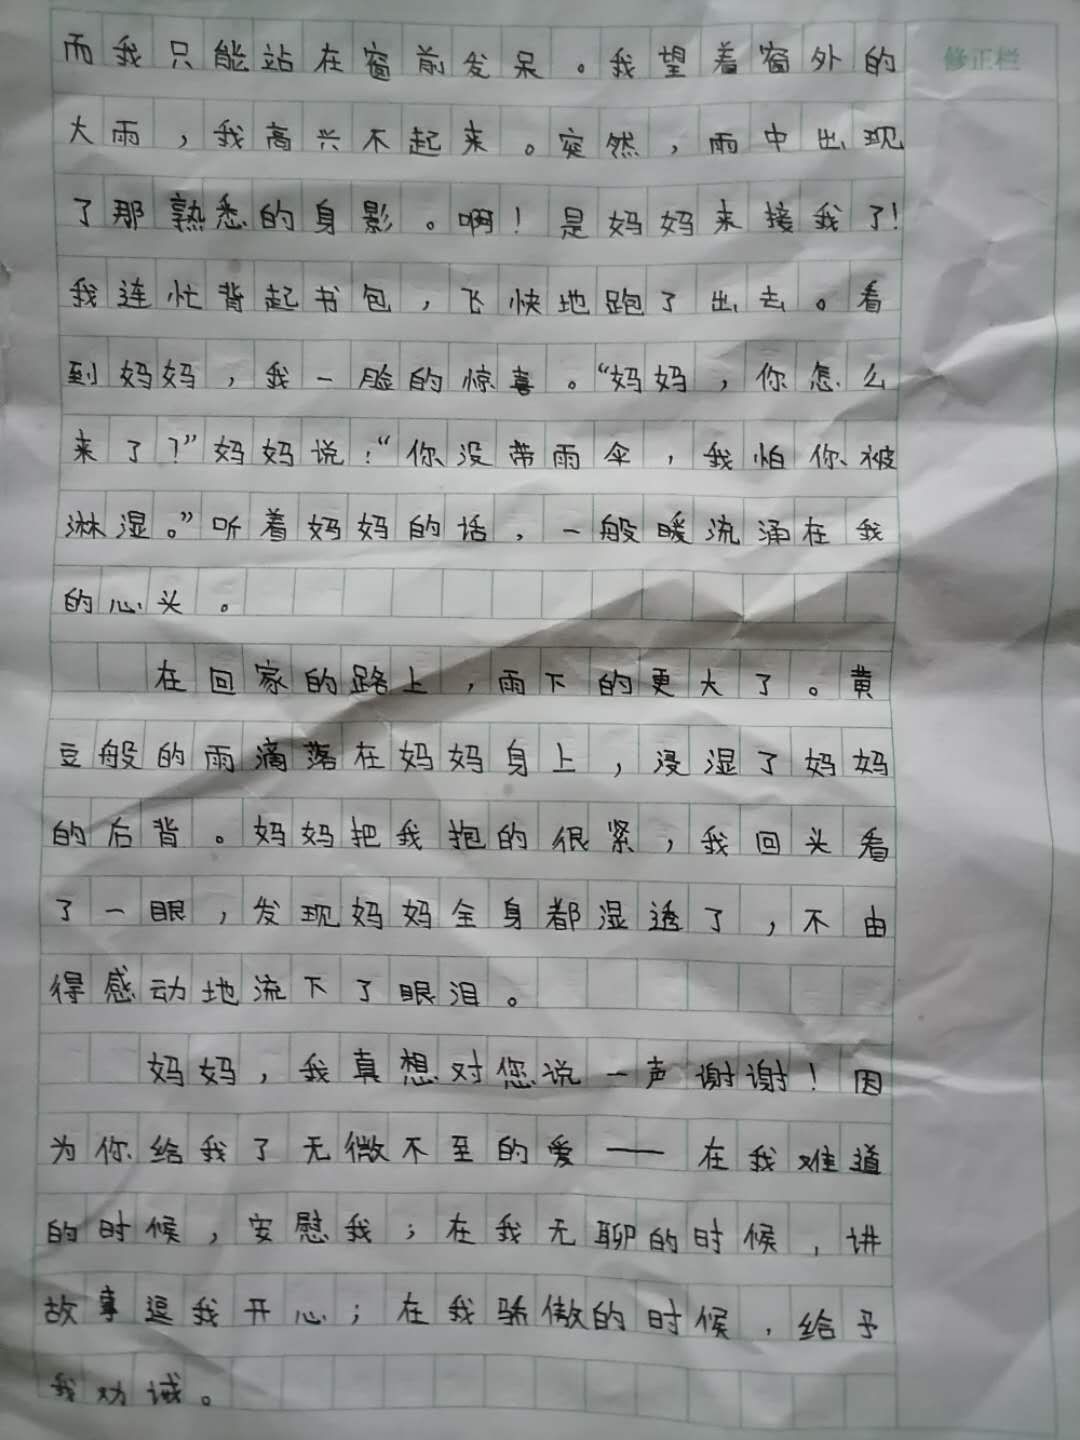 而我只能站在窗前发呆。我望着窗外的
修正栏
大雨，我高兴不起来。突然，雨中出现
了那熟悉的身影。啊！是妈妈来接我了！
我连忙背起书包，飞快地跑了出去。看
到妈妈，我一脸的惊喜。“妈妈，你怎么
来了？”妈妈说：“你没带雨伞，我怕你被
淋湿。”听着妈妈的话，一般暖流涌在我
的心头。
在回家的路上，雨下的更大了。黄
豆般的雨滴落在妈妈身上，浸湿了妈妈
的后背。妈妈把我抱的很紧，我回头看
了一眼，发现妈妈全身都湿透了，不由
得感动地流下了眼泪。
妈妈，我真想对您说一声谢谢！因
为你给我了无微不至的爱——在我难道
的时候，安慰我；在我无聊的时候，讲
故事逗我开心；在我骄傲的时候，给予
我劝诫。